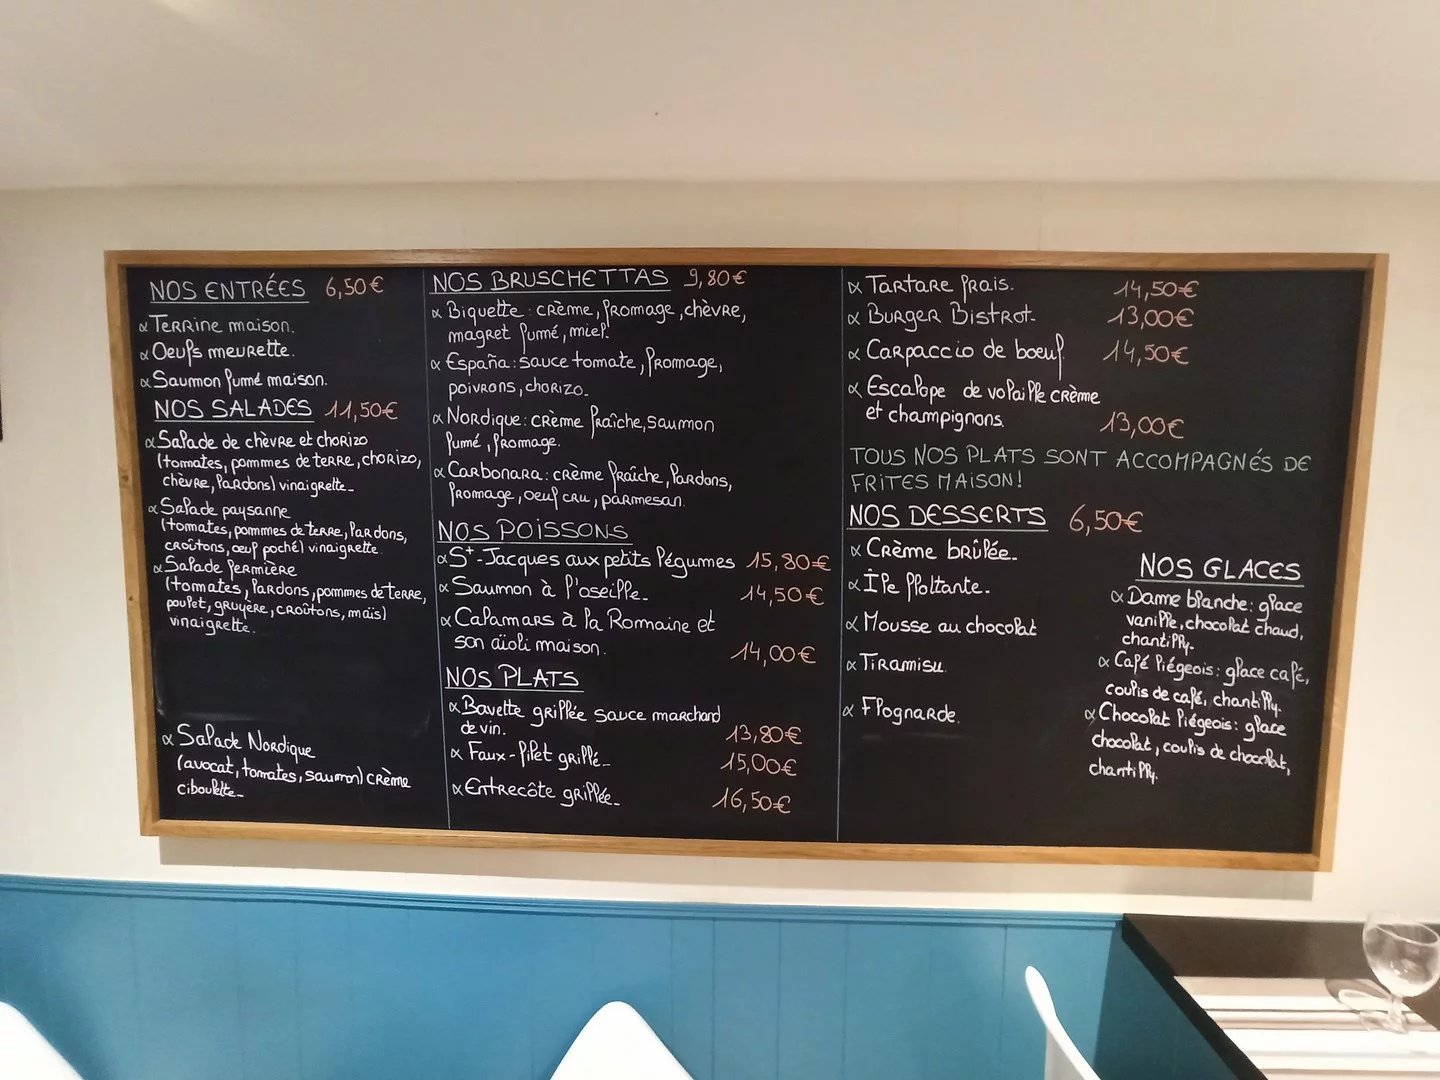 NOS ENTRÉES 6,50€
Terrine maison.
Oeufs meurette.
Saumon fumé maison.
NOS SALADES 11,50€
Salade de chèvre et chorizo
(tomates, pommes de terre, chorizo,
chèvre, lardons) vinaigrette_
Salade paysanne
(tomates, pommes de terre, lardons,
croûtons, œuf poché) vinaigrette.
Salade fermière
(tomates, lardons, pommes de terre,
poulet, gruyère, croûtons, maïs)
vinaigrette.
Salade Nordique
(avocat, tomates, saumon) crème
ciboulette_
NOS BRUSCHETTAS 9,80€
Biquette : crème, fromage, chèvre,
magret fumé, miel.
España : sauce tomate, fromage,
poivrons, chorizo_
Nordique : crème fraîche, saumon
fumé, fromage.
Carbonara : crème fraîche, lardons,
fromage, oeuf cru, parmesan.
NOS POISSONS
St-Jacques aux petits légumes 15,80€
Saumon à l'oseille_ 14,50€
Calamars à la Romaine et
son aïoli maison. 14,00€
NOS PLATS
Bavette grillée sauce marchand
de vin. 13,80€
Faux-filet grillé_ 15,00€
Entrecôte grillée_ 16,50€
Tartare frais. 14,50€
Burger Bistrot_ 13,00€
Carpaccio de boeuf. 14,50€
Escalope de volaille crème
et champignons 13,00€
TOUS NOS PLATS SONT ACCOMPAGNÉS DE
FRITES MAISON!
NOS DESSERTS 6,50€
Crème brûlée_
Île flottante_
Mousse au chocolat
Tiramisu
Flognarde.
NOS GLACES
Dame blanche : glace
vanille, chocolat chaud,
chantilly_
Café liégeois : glace café,
coulis de café, chantilly.
Chocolat liégeois : glace
chocolat, coulis de chocolat,
chantilly.